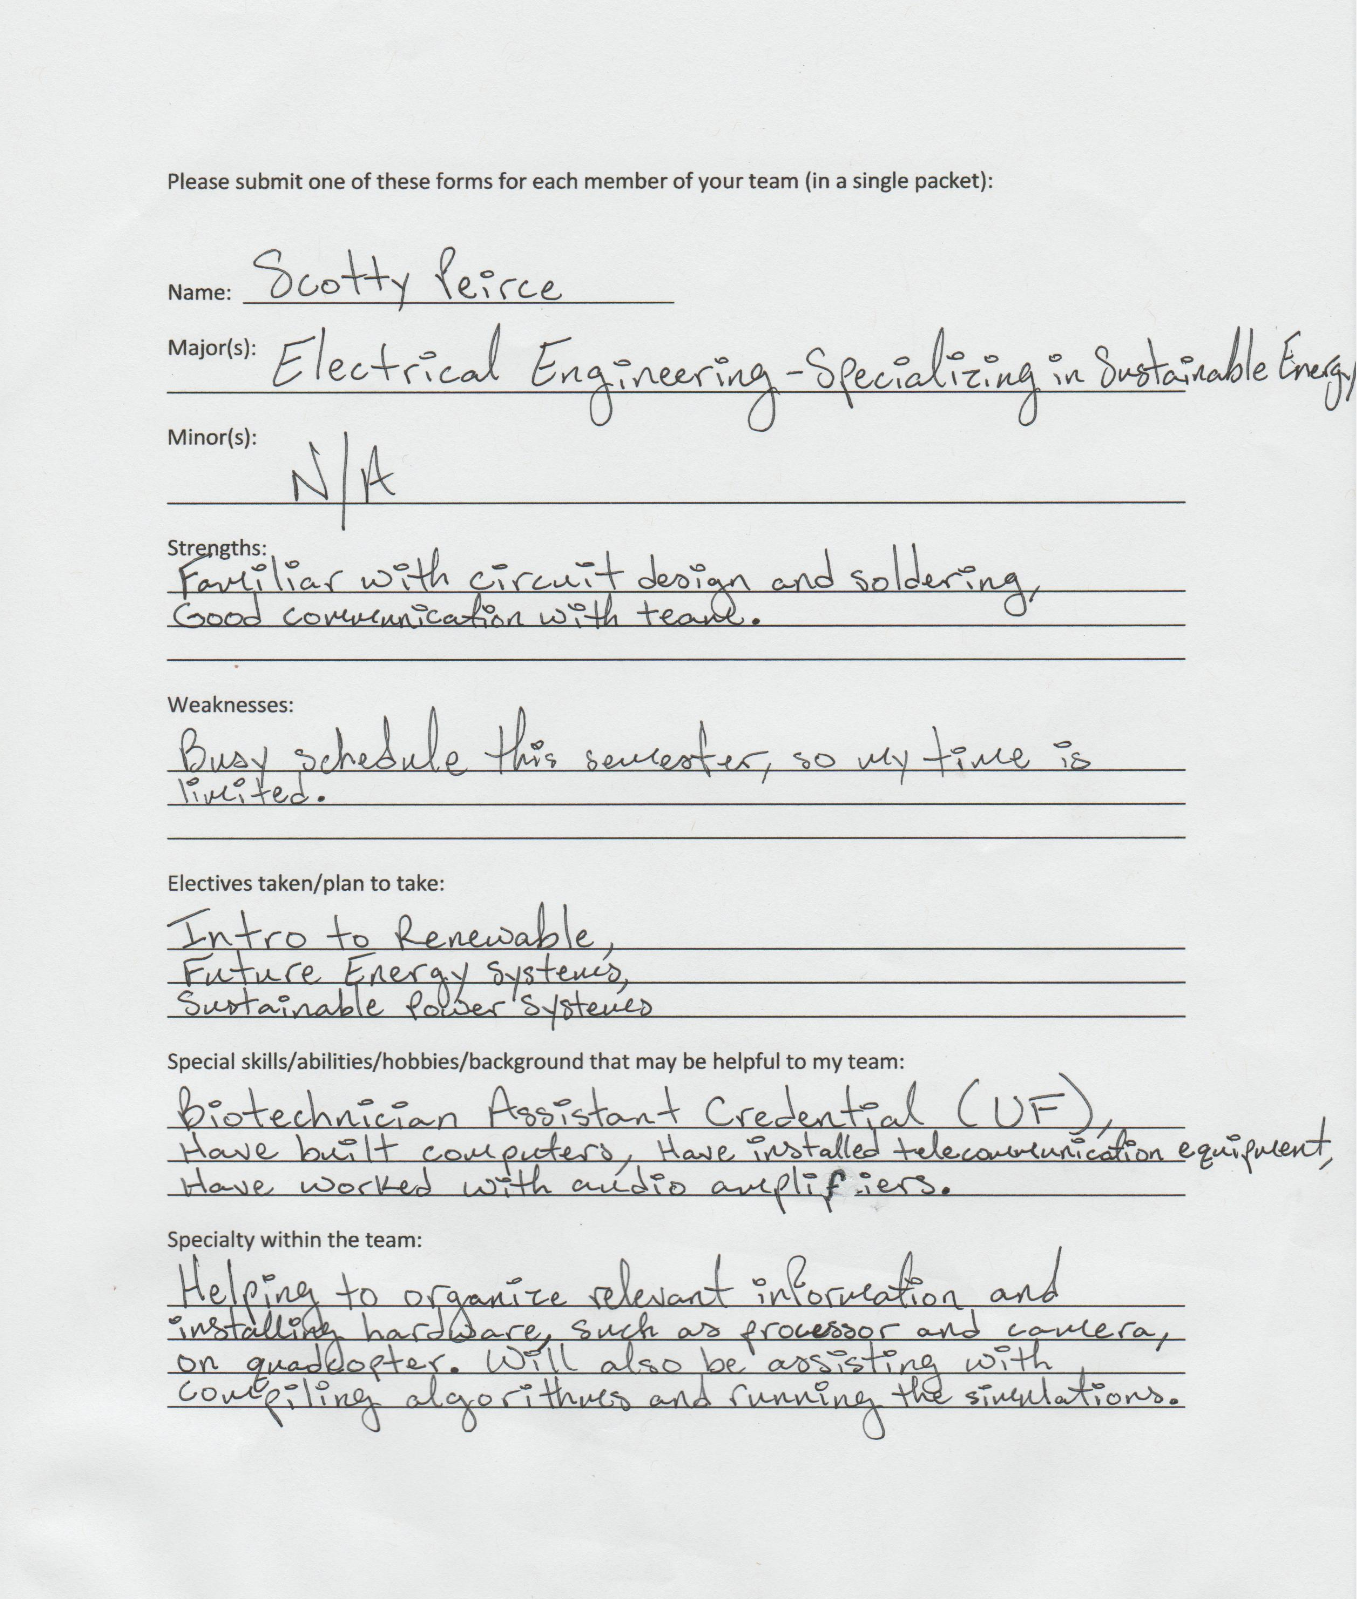 Please submit one of these forms for each member of your team (in a single packet):
Name: Scotty Peirce
Major(s): Electrical Engineering - Specializing in Sustainable Energy
Minor(s):
N/A
Strengths:
Familiar with circuit design and soldering,
Good communication with team.
Weaknesses:
Busy schedule this semester, so my time is
limited.
Electives taken/plan to take:
Intro to Renewable,
Future Energy Systems,
Sustainable Power Systems
Special skills/abilities/hobbies/background that may be helpful to my team:
Biotechnician Assistant Credential (UF),
Have built computers, Have installed telecommunication equipment,
Have worked with audio amplifiers.
Specialty within the team:
Helping to organize relevant information and
installing hardware, such as processor and camera,
on quadcopter. Will also be assisting with
compiling algorithms and running the simulations.